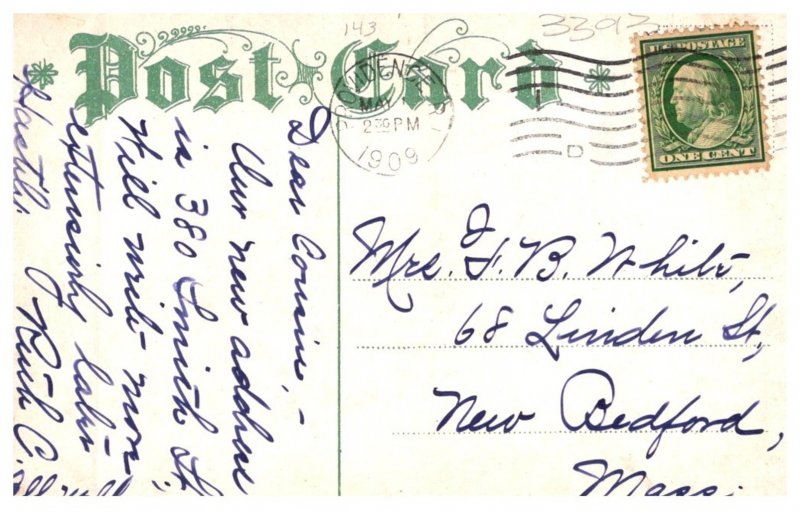 143
3393
Post Card
PROVIDENCE, R.I.
MAY
2:30 PM
1909
U.S. POSTAGE
ONE CENT
D
Dear Cousin,-
Our new address
is 380 Smith St
Will write more
extensively later
Hastily
Ruth C.
Mrs. F. B. White,
68 Linden St,
New Bedford,
Mass